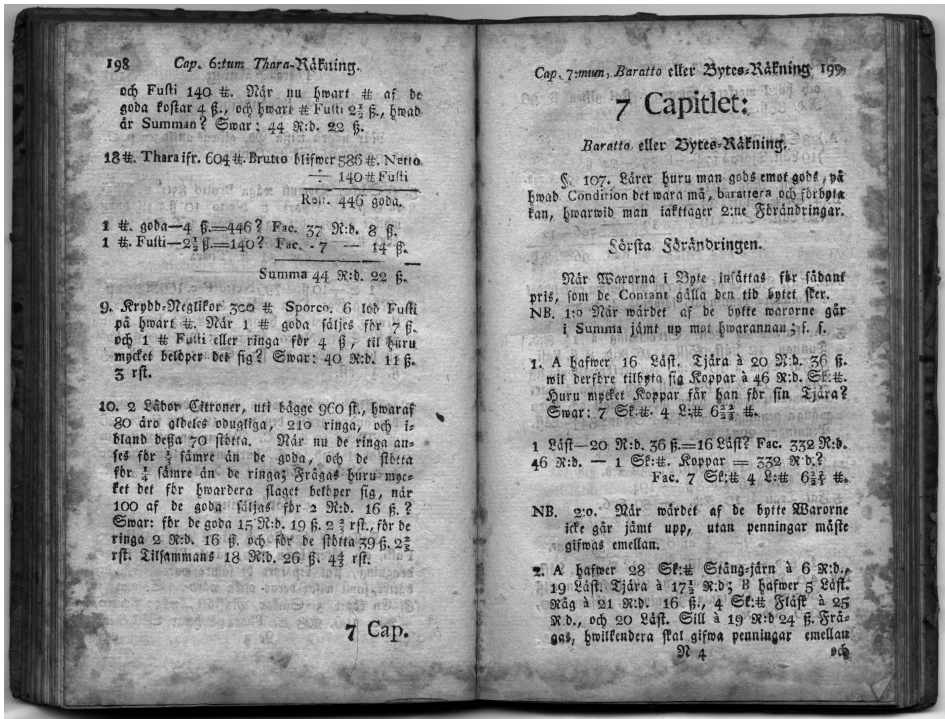 198 Cap. 6:tum Thara-Räkning.
och Fusti 140 ⌗. När nu hwart ⌗ af de
goda kostar 4 ß., och hwart ⌗ Fusti 2½ ß., hwad
är Summan? Swar: 44 R:d. 22 ß.
18 ⌗. Thara ifr. 604 ⌗. Brutto blifwer 586 ⌗. Netto
÷ 140 ⌗ Fusti
Rest. 446 goda.
1 ⌗. goda—4 ß.=446? Fac. 37 R:d. 8 ß.
1 ⌗. Fusti—2½ ß.=140? Fac. - 7 — 14 ß.
Summa 44 R:d. 22 ß.
9. Krydd-Neglikor 300 ⌗ Sporco. 6 lod Fusti
på hwart ⌗. När 1 ⌗ goda säljes för 7 ß.
och 1 ⌗ Fusti eller ringa för 4 ß, til huru
mycket belöper det sig? Swar: 40 R:d. 11 ß.
3 rst.
10. 2 Lådor Citroner, uti bägge 960 st., hwaraf
80 äro aldeles odugliga, 210 ringa, och i-
bland deßa 70 stötta. När nu de ringa an-
ses för sämre än de goda, och de stötta
för ¼ sämre än de ringa; Frågas huru myc-
ket det för hwardera slaget belöper sig, når
100 af de goda säljas för 2 R:d. 16 ß.?
Swar: för de goda 15 R:d. 19 ß. 2 rst., för de
ringa 2 R:d. 16 ß. och för de stötta 39 ß. 2
rst. Tilsammans 18 R:d. 26 ß. 4 rst.
7 Cap.
Cap. 7:mun, Baratto eller Bytes-Räkning 199.
7 Capitlet:
Baratto eller Bytes-Räkning.
§. 107. Lärer huru man gods emot gods, på
hwad Condition det wara må, barattera och förbyta
kan, hwarwid man iakttager 2:ne Förändringar.
Första Förändringen.
När Warorna i Byte insättas för sådant
pris, som de Contant gälla den tid bytet sker.
NB. 1:o När wärdet af de bytte warorne går
i Summa jämt up mot hwarannan; s. s.
1. A hafwer 16 Läst. Tjära à 20 R:d. 36 ß.
wil derföre tilbyta sig Koppar à 46 R:d. Sk:⌗.
Huru mycket Koppar får han för sin Tjära?
Swar: 7 Sk:⌗. 4 L:⌗ 6 ⌗.
1 Läst—20 R:d. 36 ß.=16 Läst? Fac. 332 R:d.
46 R:d. — 1 Sk:⌗. Koppar = 332 R:d.?
Fac. 7 Sk:⌗ 4 L:⌗ 6 ⌗.
NB. 2:o. När wärdet af de bytte Warorne
icke går jämt upp, utan penningar måste
gifwas emellan.
2. A hafwer 28 Sk:⌗ Stång-järn à 6 R:d.,
19 Läst. Tjära à 17½ R:d; B hafwer 5 Läst.
Råg à 21 R:d. 16 ß., 4 Sk:⌗ Fläsk à 25
R.d., och 20 Läst. Sill à 19 R:d 24 ß. Frå-
gas, hwilkendera skal gifwa penningar emellan
N 4 och